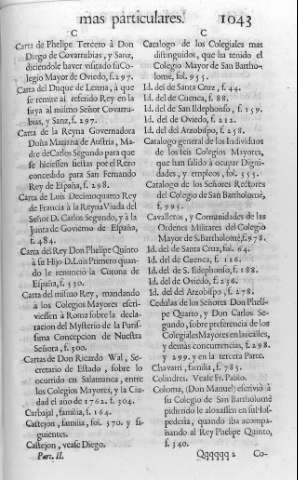 mas particulares. 1043
C
Carta de Phelipe Tercero à Don
Diego de Covarrubias, y Sanz,
diciendole haver visitado su Co-
legio Mayor de Oviedo, f. 297.
Carta del Duque de Lerma, à que
se remite al referido Rey en la
suya al mismo Señor Covarru-
bias, y Sanz, f. 297.
Carta de la Reyna Governadora
Doña Mariana de Austria, Ma-
dre de Carlos Segundo para que
se hiciessen fiestas por el Rezo
concedido para San Fernando
Rey de España, f. 298.
Carta de Luis Decimoquarto Rey
de Francia à la Reyna Viuda del
Señor D. Carlos Segundo, y à la
Junta de Govierno de España,
f. 484.
Carta del Rey Don Phelipe Quinto
à su Hijo D. Luis Primero quan-
do le renunciò la Corona de
España, f. 530.
Carta del mismo Rey, mandando
à los Colegios Mayores escri-
viessen à Roma sobre la decla-
racion del Mysterio de la Purif-
sima Concepcion de Nuestra
Señora, f. 300.
Cartas de Don Ricardo Wal, Se-
cretario de Estado, sobre lo
ocurrido en Salamanca, entre
los Colegios Mayores, y la Ciu-
dad el año de 1762. f. 304.
Carbajal, familia, f. 164.
Castejon, familia, fol. 370. y si-
guientes.
Castejon, vease Diego.
Part. II.
C
Catalogo de los Colegiales mas
distinguidos, que ha tenido el
Colegio Mayor de San Bartho-
lomè, fol. 955.
Id. del de Santa Cruz, f. 44.
Id. del de Cuenca, f. 88.
Id. del de San Ildephonso, f. 159.
Id. del de Oviedo, f. 212.
Id. del del Arzobispo, f. 258.
Catalogo general de los Individuos
de los seis Colegios Mayores,
que han salido à ocupar Digni-
dades, y empleos, fol. 355.
Catalogo de los Señores Rectores
del Colegio de San Bartholomè,
f. 995.
Cavalleros, y Comunidades de las
Ordenes Militares del Colegio
Mayor de S. Bartholomè, f. 978.
Id. del de Santa Cruz, fol. 64.
Id. del de Cuenca, f. 116.
Id. del de S. Ildephonso, f. 188.
Id. del de Oviedo, f. 236.
Id. del del Arzobispo, f. 278.
Cedulas de los Señores Don Pheli-
pe Quarto, y Don Carlos Se-
gundo, sobre preferencia de los
Colegiales Mayores en las ,
y demàs concurrencias, f. 298.
y 299. y en la tercera Parte.
Chavarri, familia, f. 785.
Colindres. Vease Fr. Pablo.
Coloma, (Don Manuel) escriviò à
su Colegio de San Bartholomè
pidiendo le alojassen en su Hos-
pederia, quando iba acompa-
ñando al Rey Phelipe Quinto,
f. 340.
Qqqqqq 2 Co-